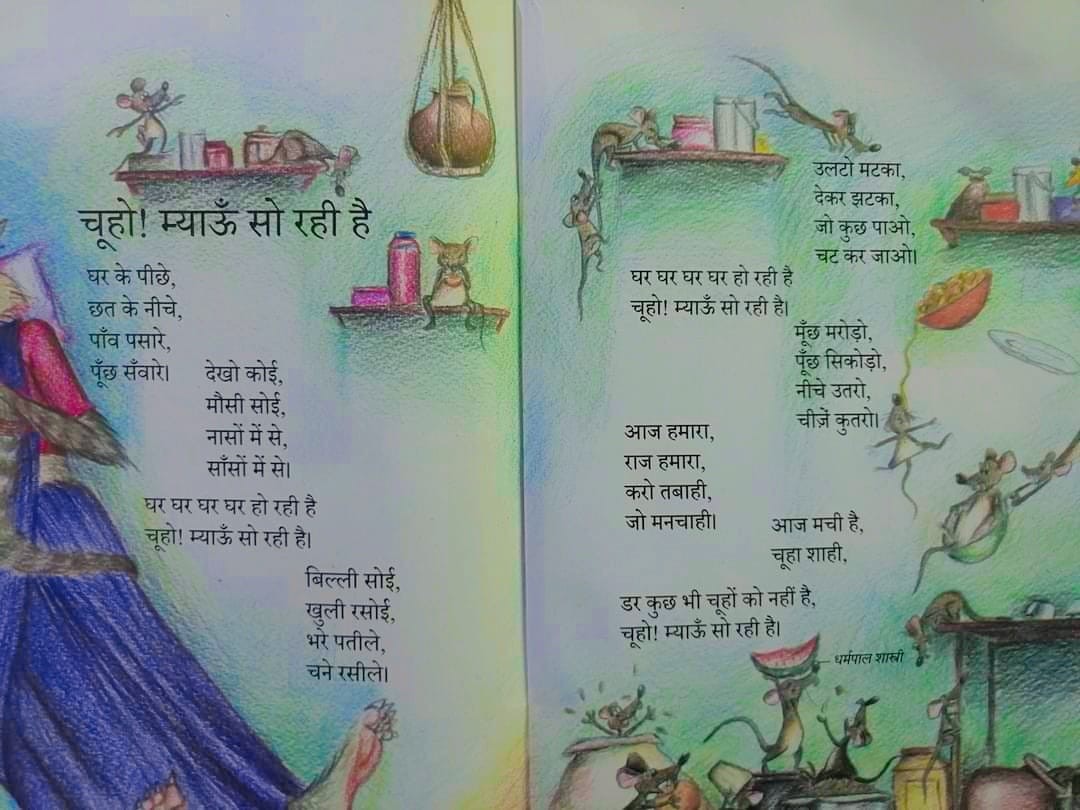 चूहो! म्याऊँ सो रही है
घर के पीछे,
छत के नीचे,
पाँव पसारे,
पूँछ सँवारे।
देखो कोई,
मौसी सोई,
नासों में से,
साँसों में से।
घर घर घर घर हो रही है
चूहो! म्याऊँ सो रही है।
बिल्ली सोई,
खुली रसोई,
भरे पतीले,
चने रसीले।
उलटो मटका,
देकर झटका,
जो कुछ पाओ,
चट कर जाओ।
घर घर घर घर हो रही है
चूहो! म्याऊँ सो रही है।
मूँछ मरोड़ो,
पूँछ सिकोड़ो,
नीचे उतरो,
चीज़ें कुतरो।
आज हमारा,
राज हमारा,
करो तबाही,
जो मनचाही।
आज मची है,
चूहा शाही,
डर कुछ भी चूहों को नहीं है,
चूहो! म्याऊँ सो रही है।
– धर्मपाल शास्त्री